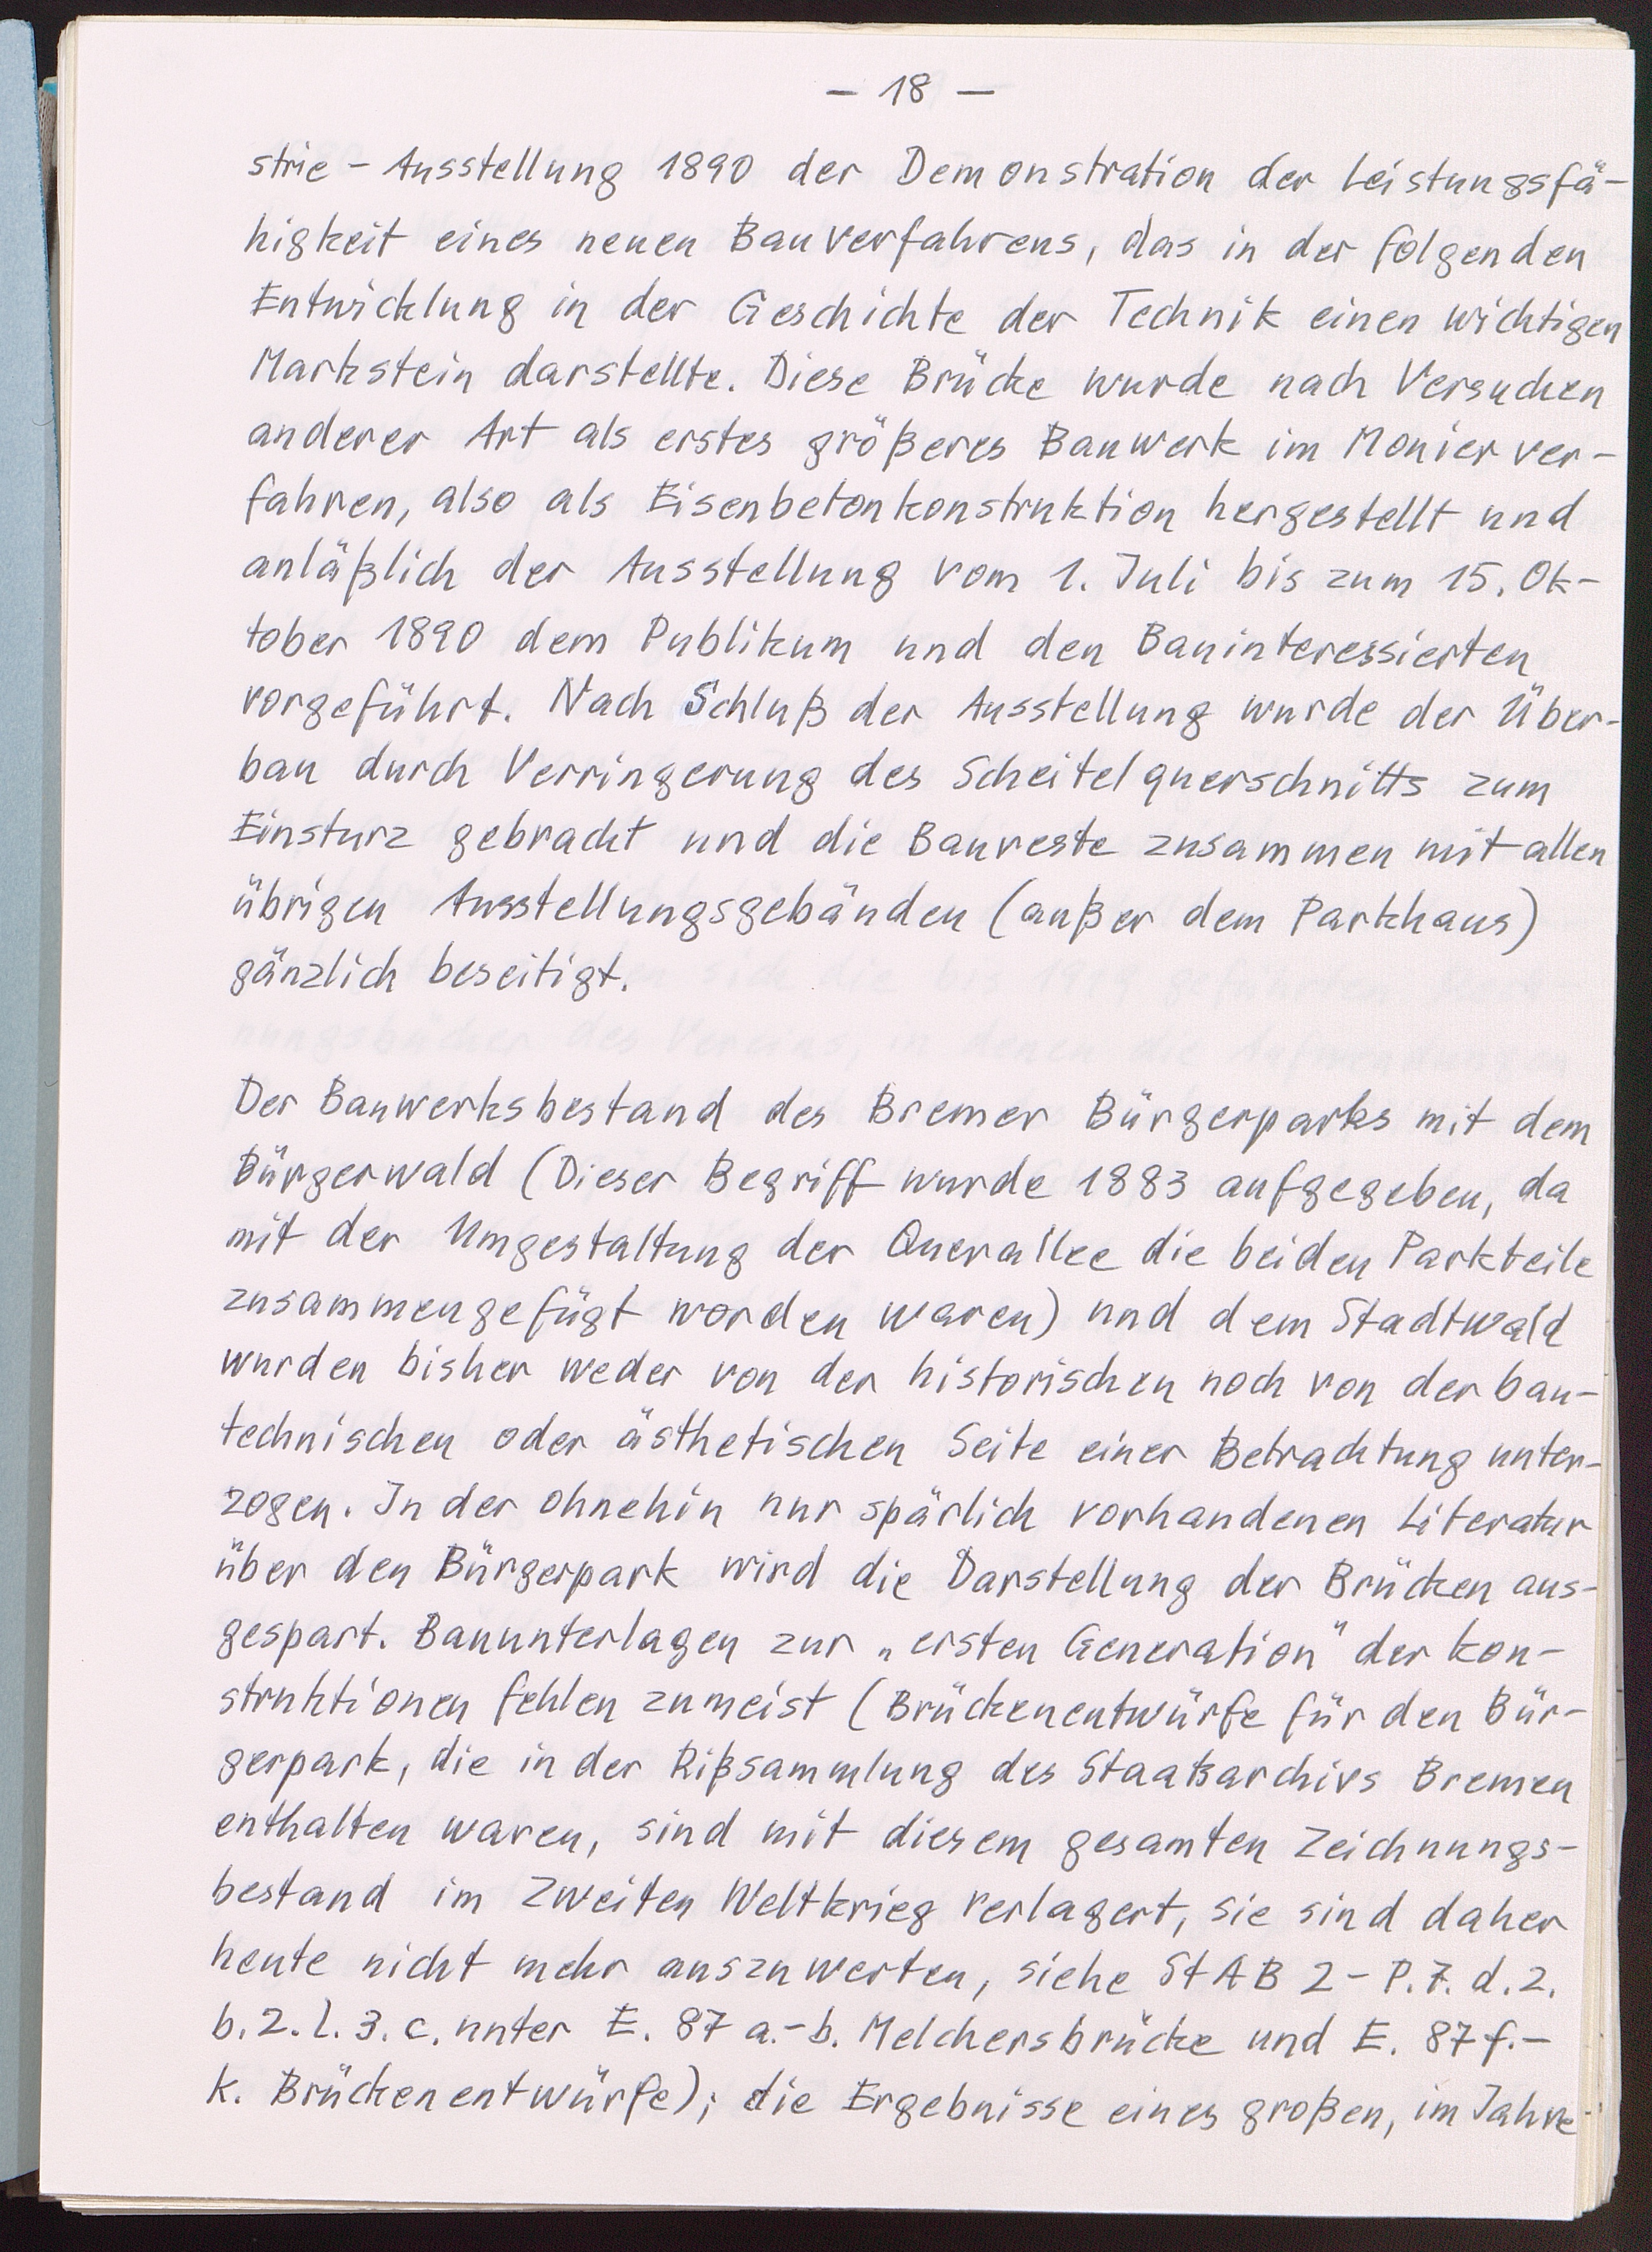 – 18 –
strie – Ausstellung 1890 der Demonstration der Leistungsfä-
higkeit eines neuen Bauverfahrens, das in der folgenden
Entwicklung in der Geschichte der Technik einen wichtigen
Markstein darstellte. Diese Brücke wurde nach Versuchen
anderer Art als erstes größeres Bauwerk im Monierver-
fahren, also als Eisenbetonkonstruktion hergestellt und
anläßlich der Ausstellung vom 1. Juli bis zum 15. Ok-
tober 1890 dem Publikum und den Bauinteressierten
vorgeführt. Nach Schluß der Ausstellung wurde der Über-
bau durch Verringerung des Scheitelquerschnitts zum
Einsturz gebracht und die Baureste zusammen mit allen
übrigen Ausstellungsgebäuden (außer dem Parkhaus)
gänzlich beseitigt.
Der Bauwerksbestand des Bremer Bürgerparks mit dem
Bürgerwald (Dieser Begriff wurde 1883 aufgegeben, da
mit der Umgestaltung der Querallee die beiden Parkteile
zusammengefügt worden waren) und dem Stadtwald
wurden bisher weder von der historischen noch von der bau-
technischen oder ästhetischen Seite einer Betrachtung unter-
zogen. In der ohnehin nur spärlich vorhandenen Literatur
über den Bürgerpark wird die Darstellung der Brücken aus-
gespart. Bauunterlagen zur „ersten Generation" der Kon-
struktionen fehlen zumeist (Brückenentwürfe für den Bür-
gerpark, die in der Rißsammlung des Staatsarchivs Bremen
enthalten waren, sind mit diesem gesamten Zeichnungs-
bestand im Zweiten Weltkrieg verlagert, sie sind daher
heute nicht mehr auszuwerten, siehe StAB 2 – P.7.d.2.
b.2.l.3.c. unter E. 87 a.–b. Melchersbrücke und E. 87 f.–
k. Brückenentwürfe); die Ergebnisse eines großen, im Jahre